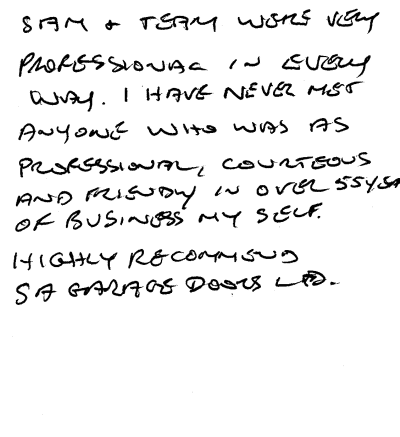 SAM & TEAM WERE VERY
PROFESSIONAL IN EVERY
WAY. I HAVE NEVER MET
ANYONE WHO WAS AS
PROFESSIONAL, COURTEOUS
AND FRIENDLY IN OVER 55
OF BUSINESS MY SELF.
HIGHLY RECOMMEND
SA GARAGE DOORS LTD.